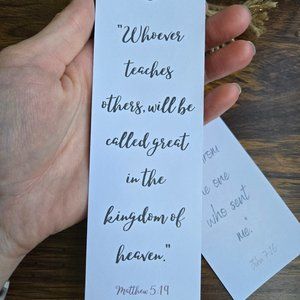 "Whoever
teaches
others, will be
called great
in the
kingdom of
heaven."
Matthew 5:19
the one
who sent
me."
John 7:16